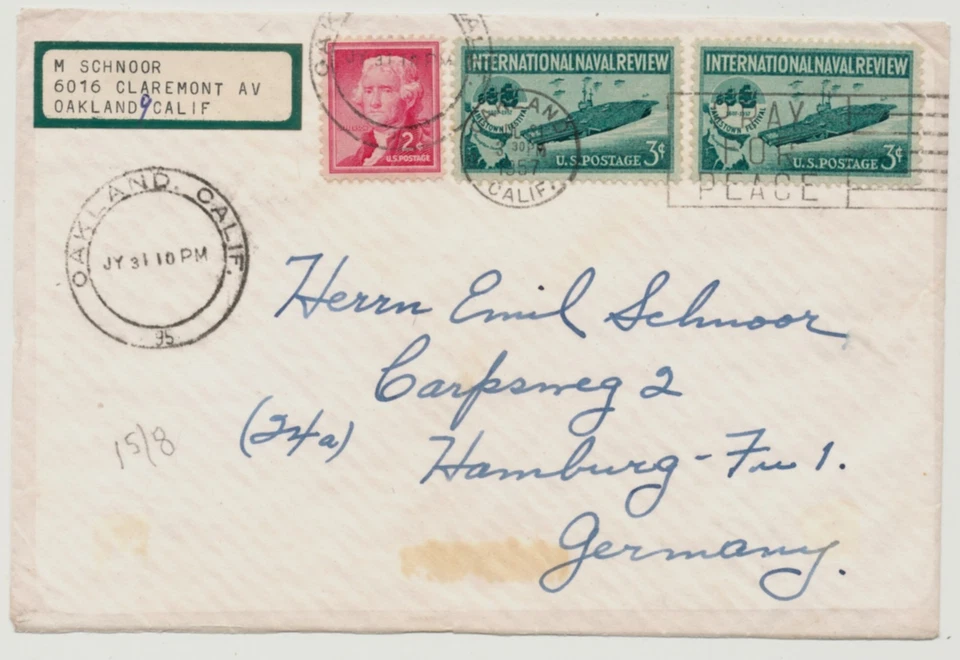 M SCHNOOR
6016 CLAREMONT AV
OAKLAND 9 CALIF
2¢
U.S. POSTAGE
INTERNATIONAL NAVAL REVIEW
U.S. POSTAGE 3¢
INTERNATIONAL NAVAL REVIEW
U.S. POSTAGE 3¢
30 PM
1957
CALIF.
PEACE
OAKLAND, CALIF.
JY 31 10 PM
95
Herrn Emil Schnoor
Carpsweg 2
(24a)
Hamburg-Fu 1.
Germany.
15/8